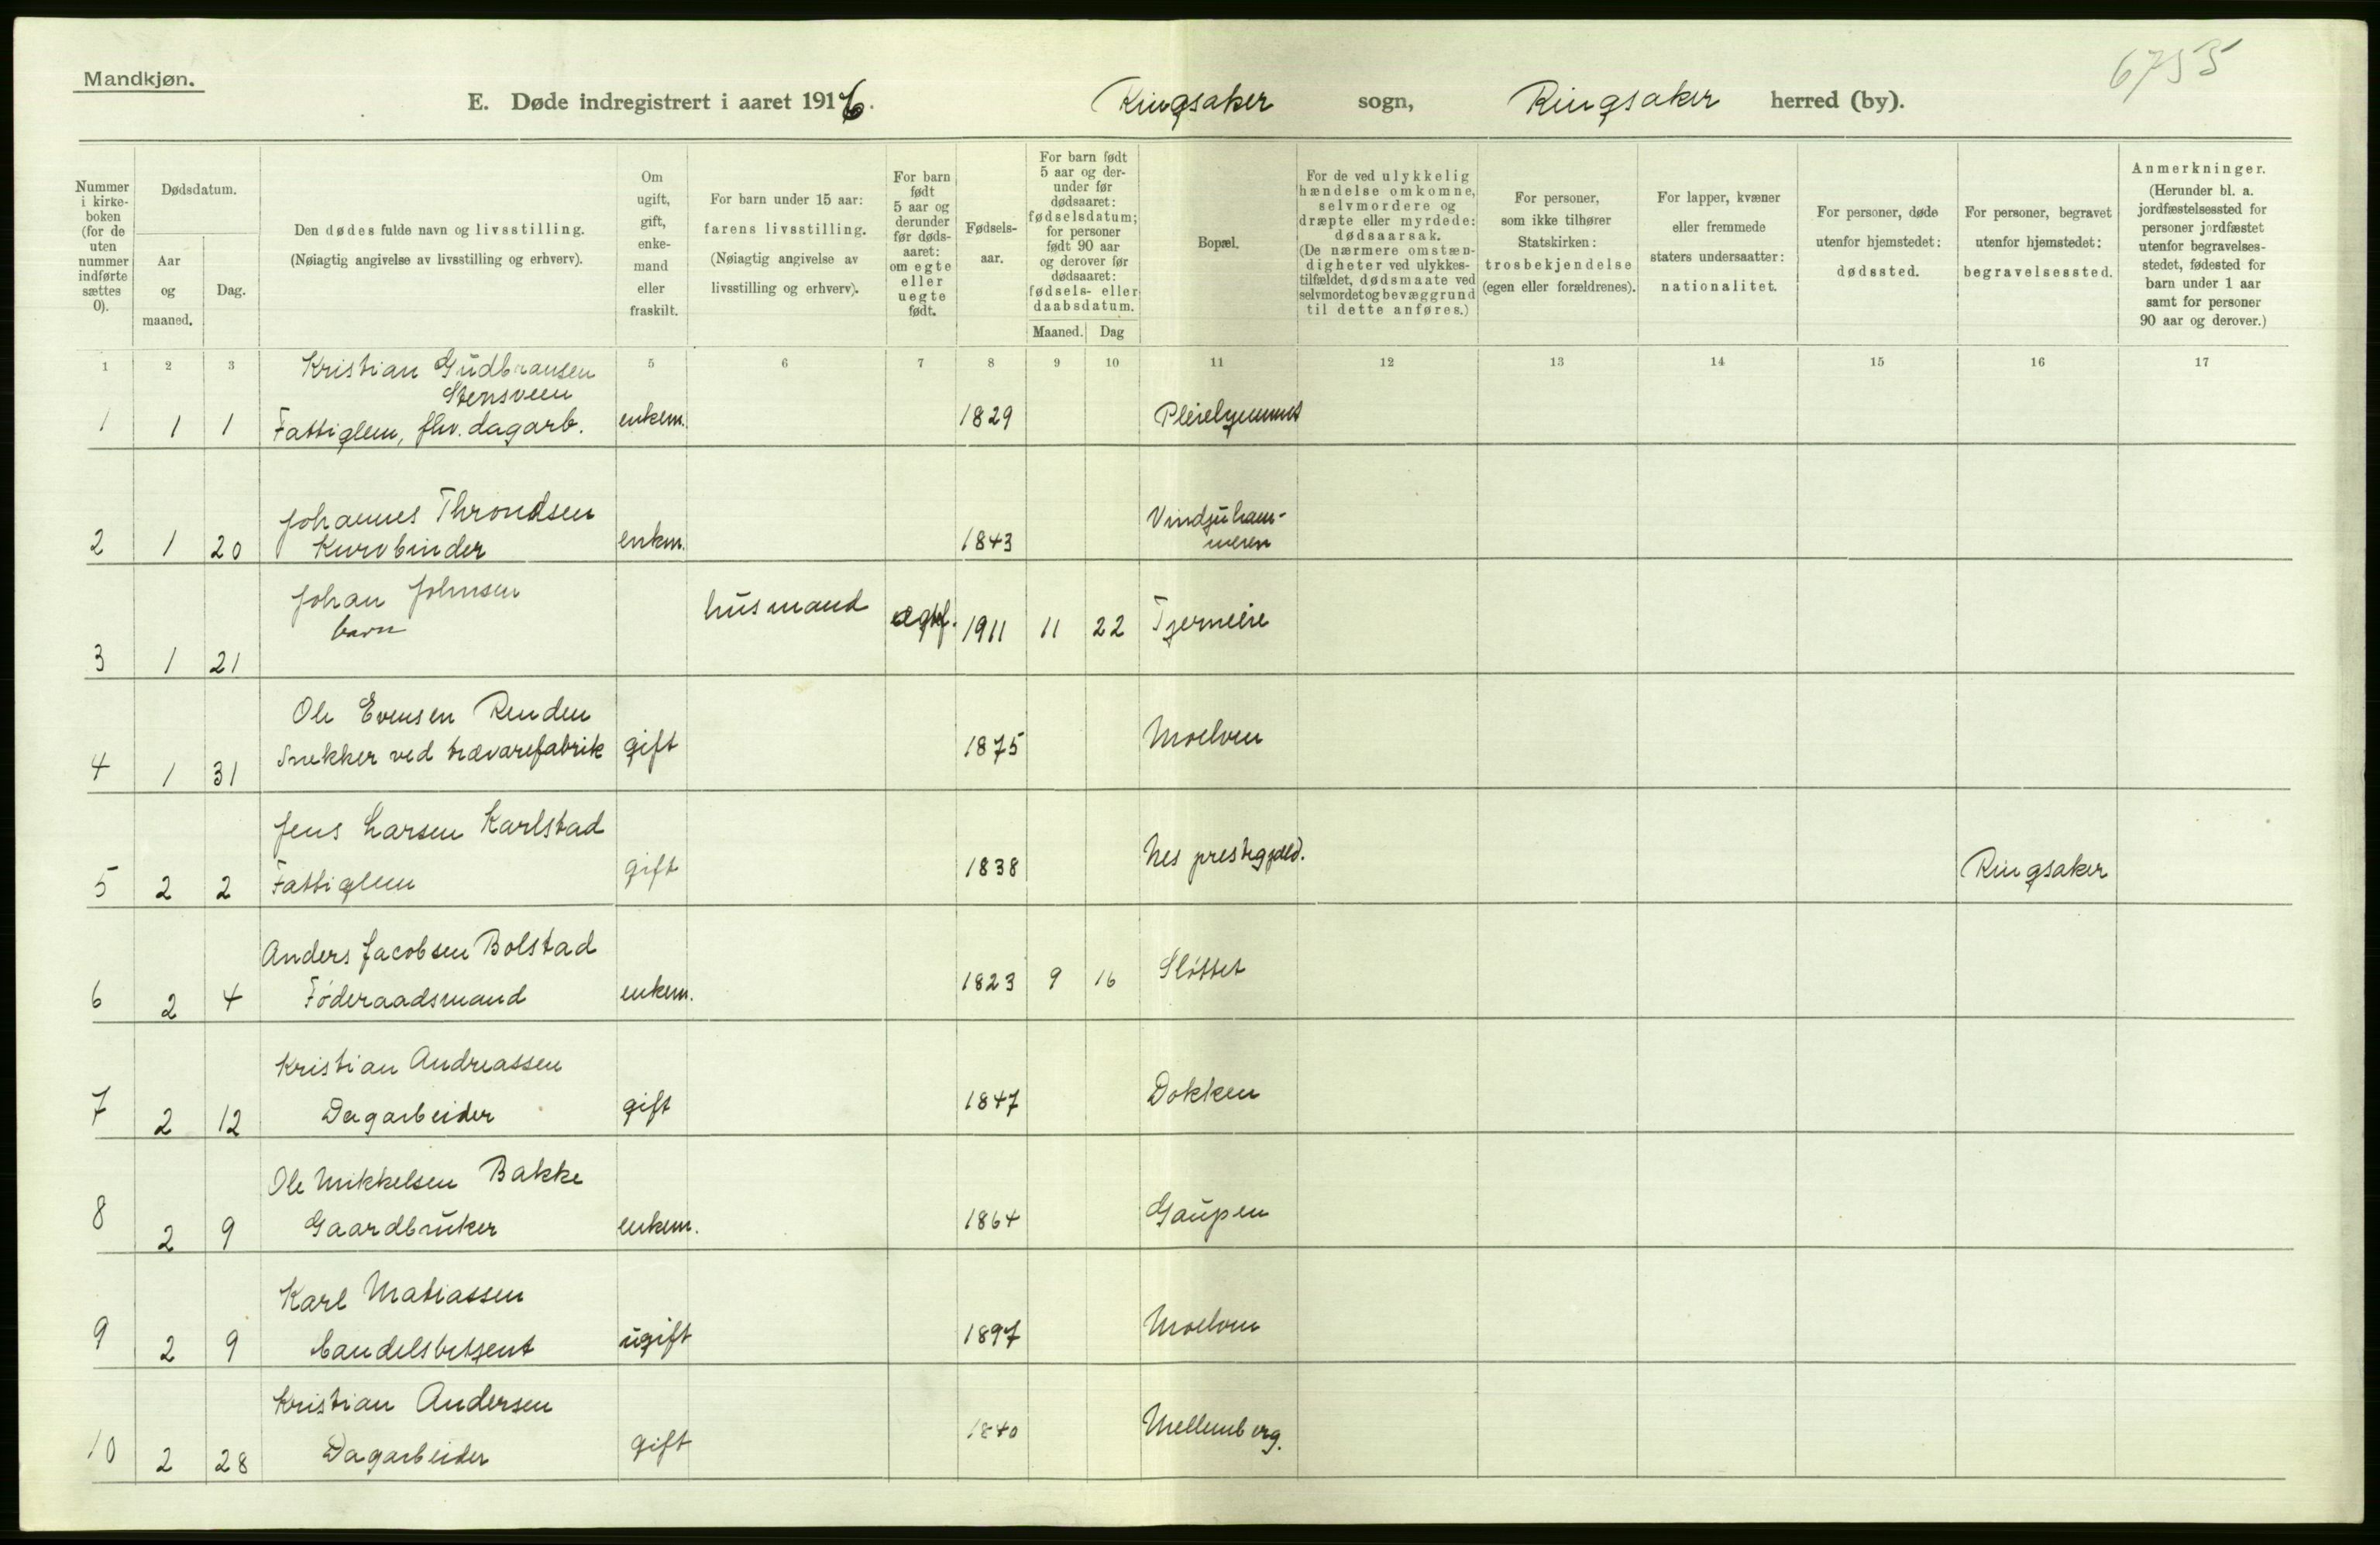 Mandkjøn.
6755
E. Døde indregistrert i aaret 1916. Ringsaker sogn, Ringsaker herred (by).
Nummer i kirke-boken (for de uten nummer indførte sættes 0).
Dødsdatum.
Aar og maaned.
Dag.
Den dødes fulde navn og livsstilling.
(Nøiagtig angivelse av livsstilling og erhverv).
Om ugift, gift, enke-mand eller fraskilt.
For barn under 15 aar: farens livsstilling.
(Nøiagtig angivelse av livsstilling og erhverv).
For barn født 5 aar og derunder før døds-aaret: om egte eller uegte født.
Fødsels-aar.
For barn født 5 aar og der-under før dødsaaret: fødselsdatum; for personer født 90 aar og derover før dødsaaret: fødsels- eller daabsdatum.
Maaned. Dag
Bopæl.
For de ved ulykkelig hændelse omkomne, selvmordere og dræpte eller myrdede: dødsaarsak.
(De nærmere omstæn-digheter ved ulykkes-tilfældet, dødsmaate ved selvmordet og bevæggrund til dette anføres.)
For personer, som ikke tilhører Statskirken: trosbekjendelse (egen eller forældrenes).
For lapper, kvæner eller fremmede staters undersaatter: nationalitet.
For personer, døde utenfor hjemstedet: dødssted.
For personer, begravet utenfor hjemstedet: begravelsessted.
Anmerkninger.
(Herunder bl. a. jordfæstelsessted for personer jordfæstet utenfor begravelses-stedet, fødested for barn under 1 aar samt for personer 90 aar og derover.)
1 2 3 5 6 7 8 9 10 11 12 13 14 15 16 17
Kristian Gudbransen
Stensveen
1 1 1 Fattiglem, fhv. dagarb. enkem. 1829 Pleiehjemmet
Johannes Throndsen Vindjuham-
2 1 20 Kurvbinder enkm. 1843 meren
Johan Johnsen husmand ægtef. 1911 11 22 Tjerneire
barn
3 1 21
Ole Evensen Renden
4 1 31 Snekker ved trævarefabrik gift 1875 Moelven
Jens Larsen Karlstad
5 2 2 Fattiglem gift 1838 Nes prestegjæld. Ringsaker
Anders Jacobsen Bolstad
6 2 4 Föderaadsmand enkem. 1823 9 16 Slöttet
Kristian Andreassen
7 2 12 Dagarbeider gift 1847 Dokken
Ole Mikkelsen Bakke
8 2 9 Gaardbruker enkem. 1864 Gaupen
Karl Matiassen
9 2 9 handelsbetjent ugift 1897 Moelven
Kristian Andersen
10 2 28 Dagarbeider gift 1840 Mellemberg.